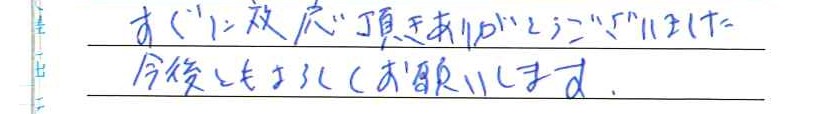 すぐに対応頂きありがとうございました
今後ともよろしくお願いします.